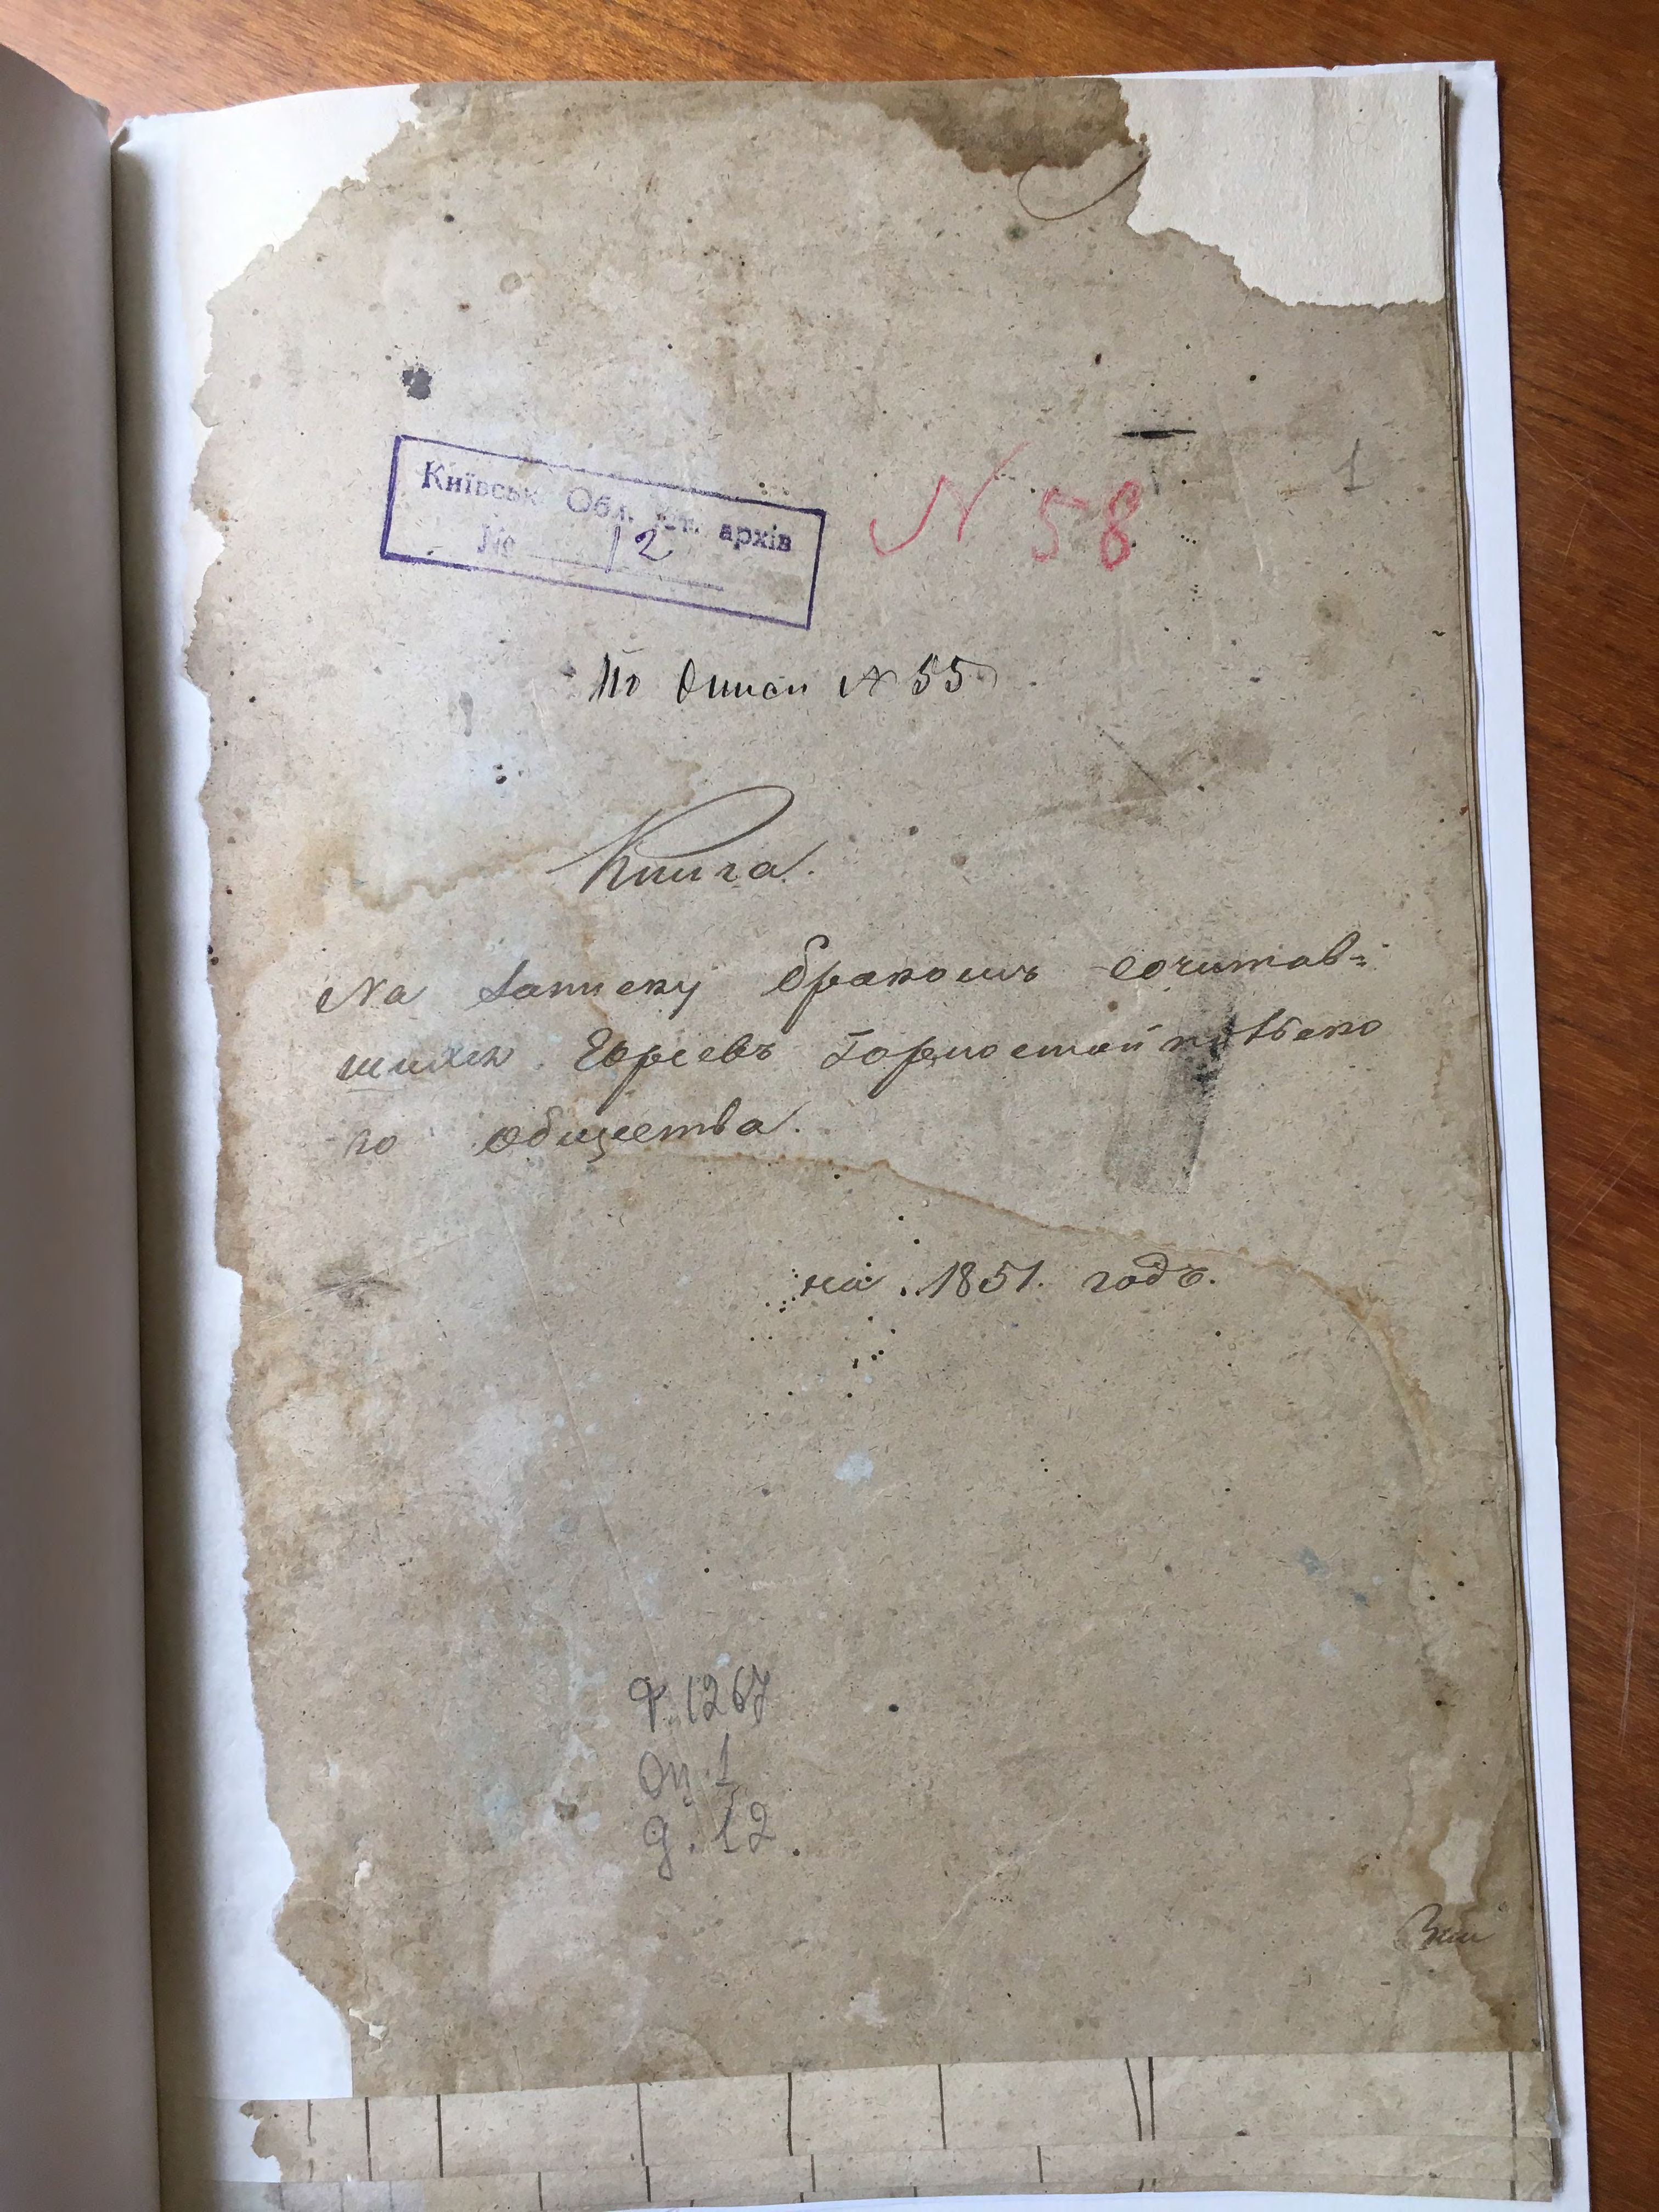 1
Київськ. Обл. Іст. архів
№ 12
N 58
По Описи № 55
Книга.
На записку бракомъ сочитав=
шихся Евреевъ Горностайпольско
го общества.
на 1851. годъ.
Ф. 1267
Оп. 1
д. 12.